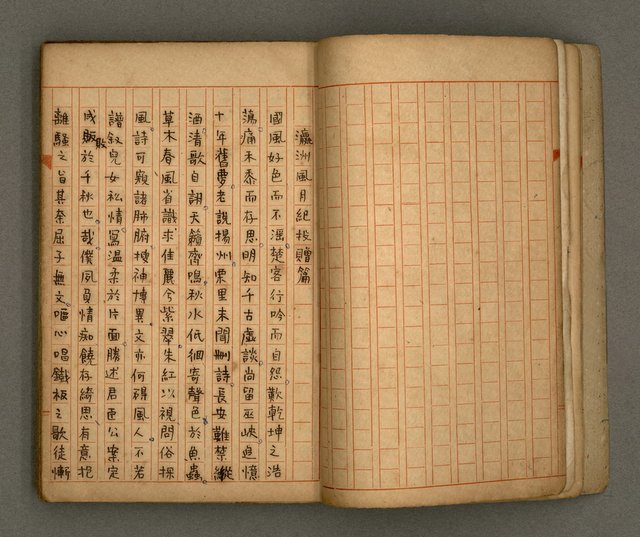 瀛洲風月紀投贈篇
國風好色而不淫楚客行吟而自怨歎乾坤之浩
蕩痛未黍而存思明知千古虛談尚留巫峽追憶
十年舊夢老說揚州栗里未聞刪詩長安難禁縱
酒清歌自詡天籟齊鳴秋水低徊寄聲色於魚蟲
草木春風省識求佳麗兮紫翠朱紅以視問俗採
風詩可窺諸肺腑搜神博異文亦何碍風人不若
譜敍兒女私情寫溫柔於片面勝述君臣公案定
成敗於千秋也哉僕夙負情痴饒存綺思有意抱
離騷之旨其奈屈子無文嘔心唱鐵板之歌徒慚